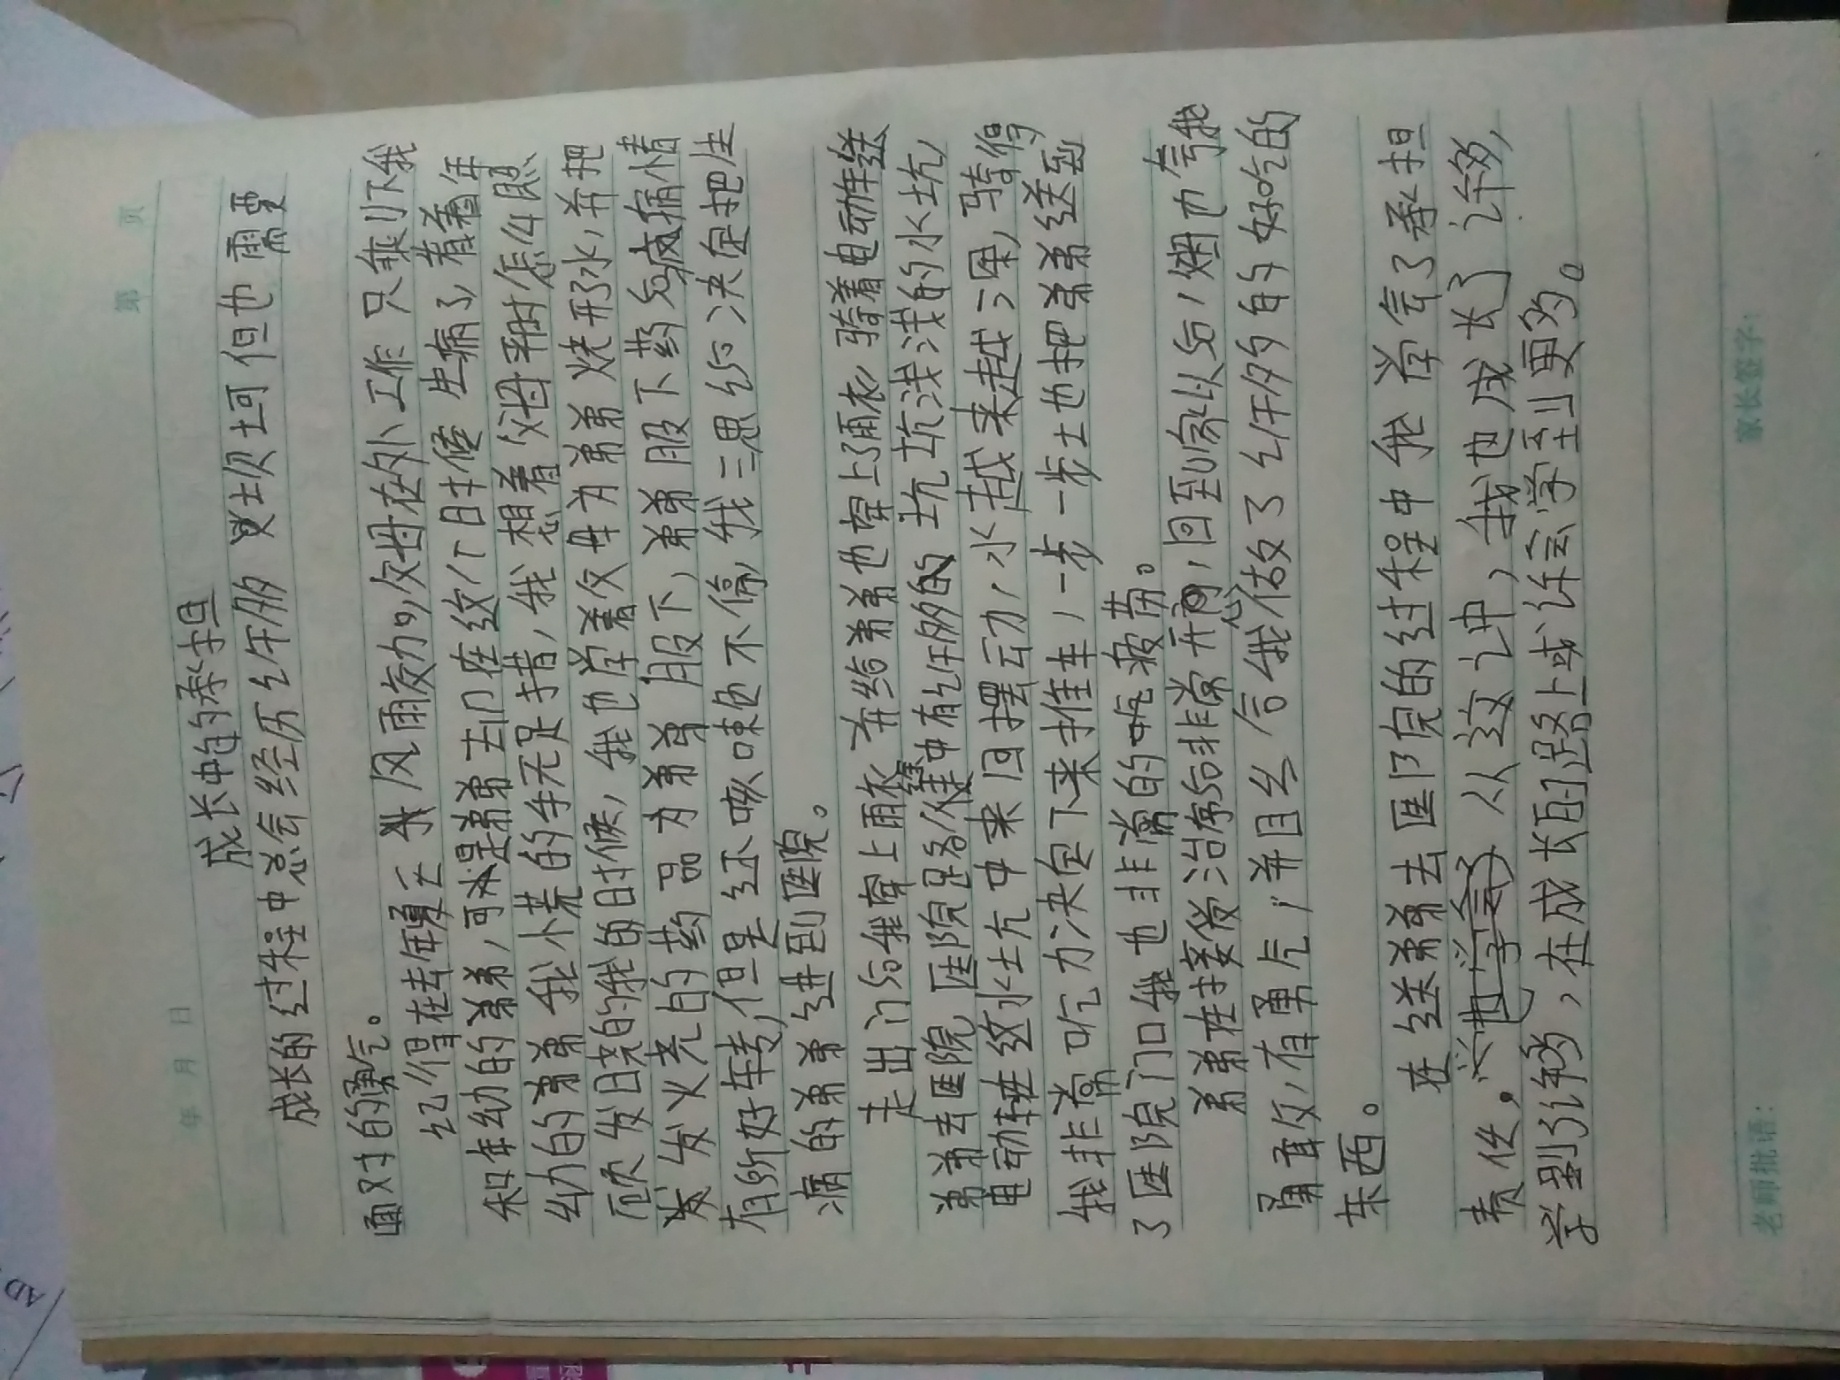 第 页
年 月 日
成长中的承担
成长的过程中总会经历许多 坎坷但也需要
面对的勇气。
记得在去年夏天 风雨交加,父母在外工作 只乘刂下我
和年幼的弟弟,可是弟弟去门在这个时候 生病了,看着年
幼的弟弟 我小荒的手无足措,我想着父母平时怎么照
顾发烧的我的时候,我也学着父母为弟弟烧开水,并把
发火尧的药品为弟弟服下,弟弟服下药后病情
有所好转,但是还咳嗽的不停,我三思后决定把生
病的弟弟送到医院。
走出门后我穿上雨衣 并给弟弟也穿上了雨衣,骑着电动车送
弟弟去医院,医院是路途中有许多的坑坑浅浅的水坑,
电动车在这水坑中来回摆动,水越来越深,骑得
我非常吃力决定下来推车,一步一步也把弟弟送到
了医院门口我也非常的吃疲劳。
弟弟在接受治疗后非常开心,回到家以后,妈也夸我
勇敢,有勇气,并且给我做了许多的好吃的
东西。
在送弟弟去医院的过程中我学会了承担
责任。也学会了从这之中,我也成长了许多,
学到了许多,在成长的路上或许会学到更多。
老师批语:
家长签字: